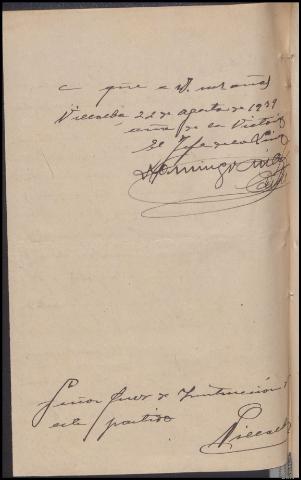 que a V. m. años
Villalba 22 de agosto de 1939
año de la Victoria
El Jefe de
Domingo
Señor Juez de Instrucción
este partido
Villalba